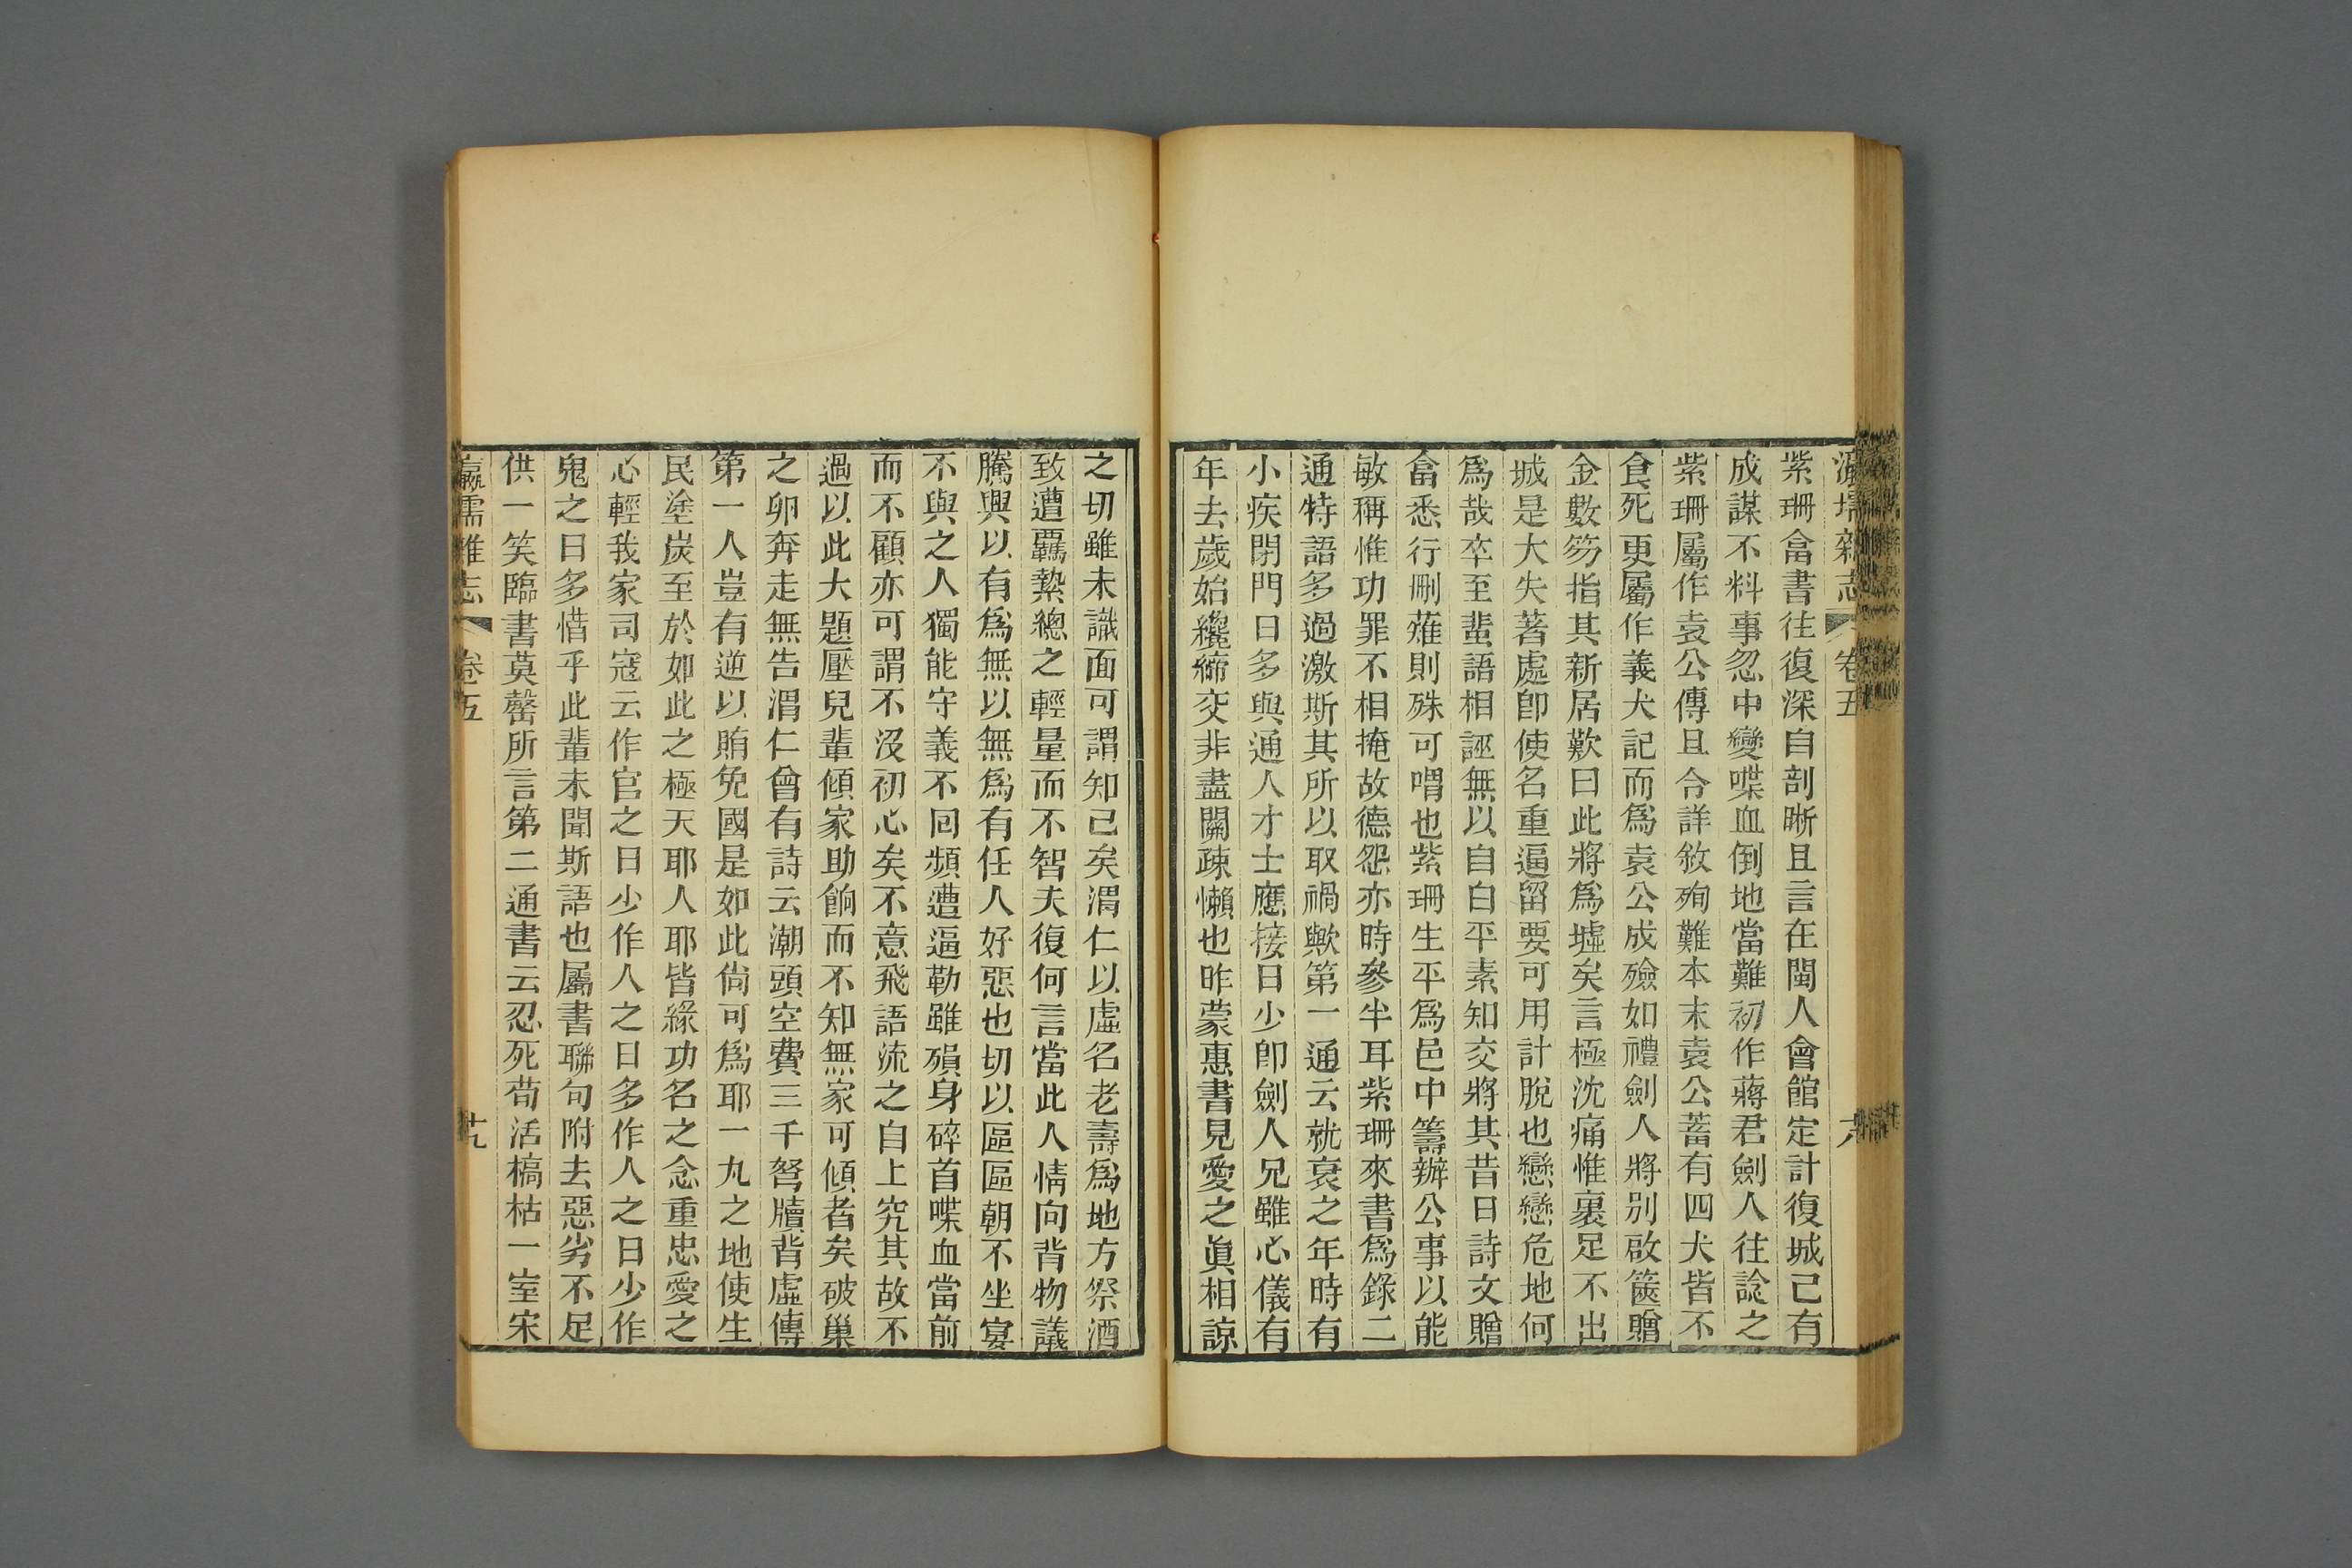 瀛壖雜志 卷五
紫珊畬書往復深自剖晰且言在閩人會館定計復城己有
成謀不料事忽中變喋血倒地當難初作蔣君劍人往諗之
紫珊屬作袁公傳且令詳敘殉難本末袁公蓄有四犬皆不
食死更屬作義犬記而爲袁公成殮如禮劍人將别啟篋贈
金數笏指其新居歎曰此將爲墟矣言極沈痛惟裹足不出
城是大失著處卽使名重逼留要可用計脫也戀戀危地何
爲哉卒至蜚語相誣無以自白平素知交將其昔日詩文贈
畬悉行刪薙則殊可喟也紫珊生平爲邑中籌辦公事以能
敏稱惟功罪不相掩故德怨亦時參半耳紫珊來書爲錄二
通特語多過激斯其所以取禍歟第一通云就衰之年時有
小疾閉門日多與通人才士應接日少卽劍人兄雖心儀有
年去歲始纔締交非盡闗疎懶也昨蒙惠書見愛之眞相諒
之切雖未識面可謂知己矣渭仁以虛名老壽爲地方祭酒
致遭羈縶總之輕量而不智夫復何言當此人情向背物議
騰興以有爲無以無爲有任人好惡也切以區區朝不坐宴
不與之人獨能守義不回頻遭逼勒雖殞身碎首喋血當前
而不顧亦可謂不沒初心矣不意飛語流之自上究其故不
過以此大題壓兒輩傾家助餉而不知無家可傾者矣破巢
之卵奔走無告渭仁曾有詩云潮頭空費三千弩牘背虛傳
第一人豈有逆以賄免國是如此尙可爲耶一九之地使生
民塗炭至於如此之極天耶人耶皆緣功名之念重忠愛之
心輕我家司寇云作官之日少作人之日多作人之日少作
鬼之日多惜乎此輩未聞斯語也屬書聯句附去惡劣不足
供一笑臨書莫罄所言第二通書云忍死苟活槁枯一室宋
瀛壖雜志 卷五 十九